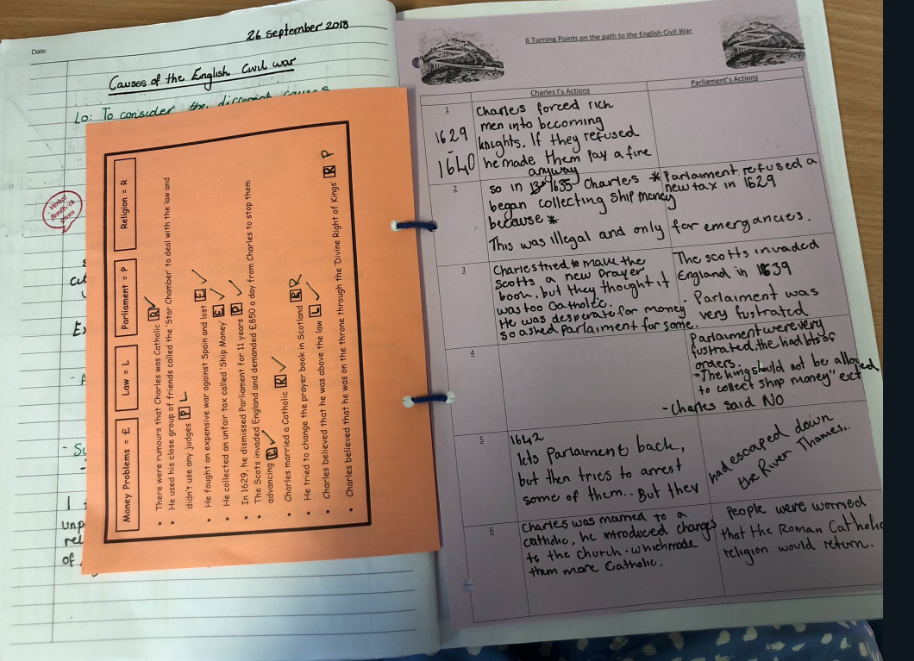 Date:
26 September 2018
Causes of the English Civil war
Lo: To consider the different causes
Verbal
given
Money Problems = £
Law = L
Parliament = P
Religion = R
• There were rumours that Charles was Catholic R ✓
• He used his close group of friends called the 'Star Chamber' to deal with the law and
didn't use any judges P L
• He fought an expensive war against Spain and lost £ ✓
• He collected an unfair tax called 'Ship Money' £ ✓
• In 1629, he dismissed Parliament for 11 years P ✓
• The Scots invaded England and demanded £850 a day from Charles to stop them
advancing £ ✓
• Charles married a Catholic R ✓
• He tried to change the prayer book in Scotland R R
• Charles believed that he was above the law L ✓
• Charles believed that he was on the throne through the 'Divine Right of Kings' R P
6 Turning Points on the path to the English Civil War
Charles I's Actions
Parliament's Actions
1
1629
-
1640
Charles forced rich
men into becoming
knights. If they refused
he made them pay a fine
anyway
2
so in 1635 Charles
began collecting ship money
because *
* Parlament refused a
new tax in 1629
This was illegal and only for emergancies.
3
Charles tried to make the
Scotts a new prayer
book, but they thought it
was too Catholic.
He was desperate for money
so asked Parlaiment for some.
The scotts invaded
England in 1639
- Parlaiment was
very fustrated
4
Parlaument were very
fustrated, the had lots of
orders.
- "The king should not be allowed
to collect ship money" ect
- Charles said NO
5
1642
lets Parlament back,
but then tries to arrest
some of them.. But they
had escaped down
the River Thames..
6
Charles was married to a
catholic, he introduced changes
to the church. which made
them more Catholic.
People were worried
that the Roman Catholic
religion would return.